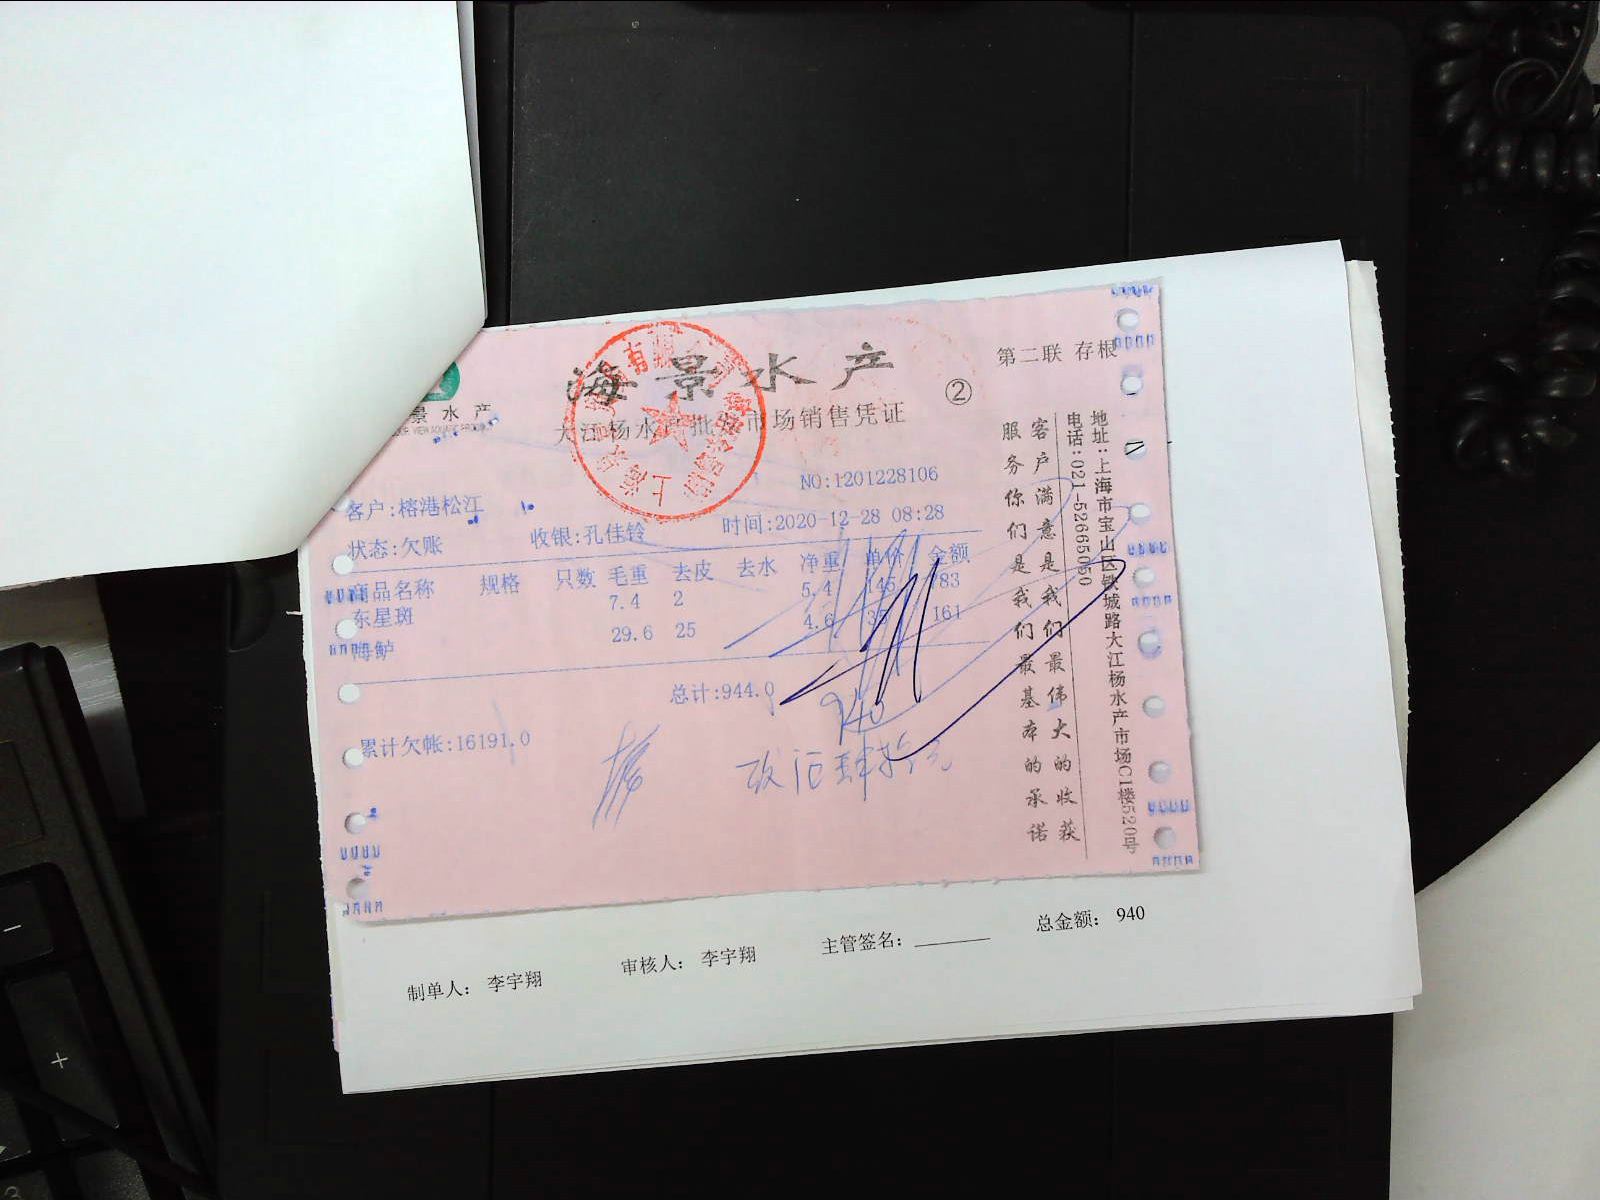 海景水产
第二联 存根
②
景水产
大江杨水产批发市场销售凭证
NO:1201228106
客户:榕港松江
状态:欠账
收银:孔佳铃
时间:2020-12-28 08:28
商品名称 规格 只数 毛重 去皮 去水 净重 单价 金额
东星斑 7.4 2 5.4 145 783
海鲈 29.6 25 4.6 35 161
总计:944.0
940
累计欠帐:16191.0
客户满意是我们最伟大的收获
服务你们是我们最基本的承诺
地址:上海市宝山区铁城路大江杨水产市场C1楼520号
电话:021-52665050
制单人: 李宇翔
审核人: 李宇翔
主管签名:
总金额: 940